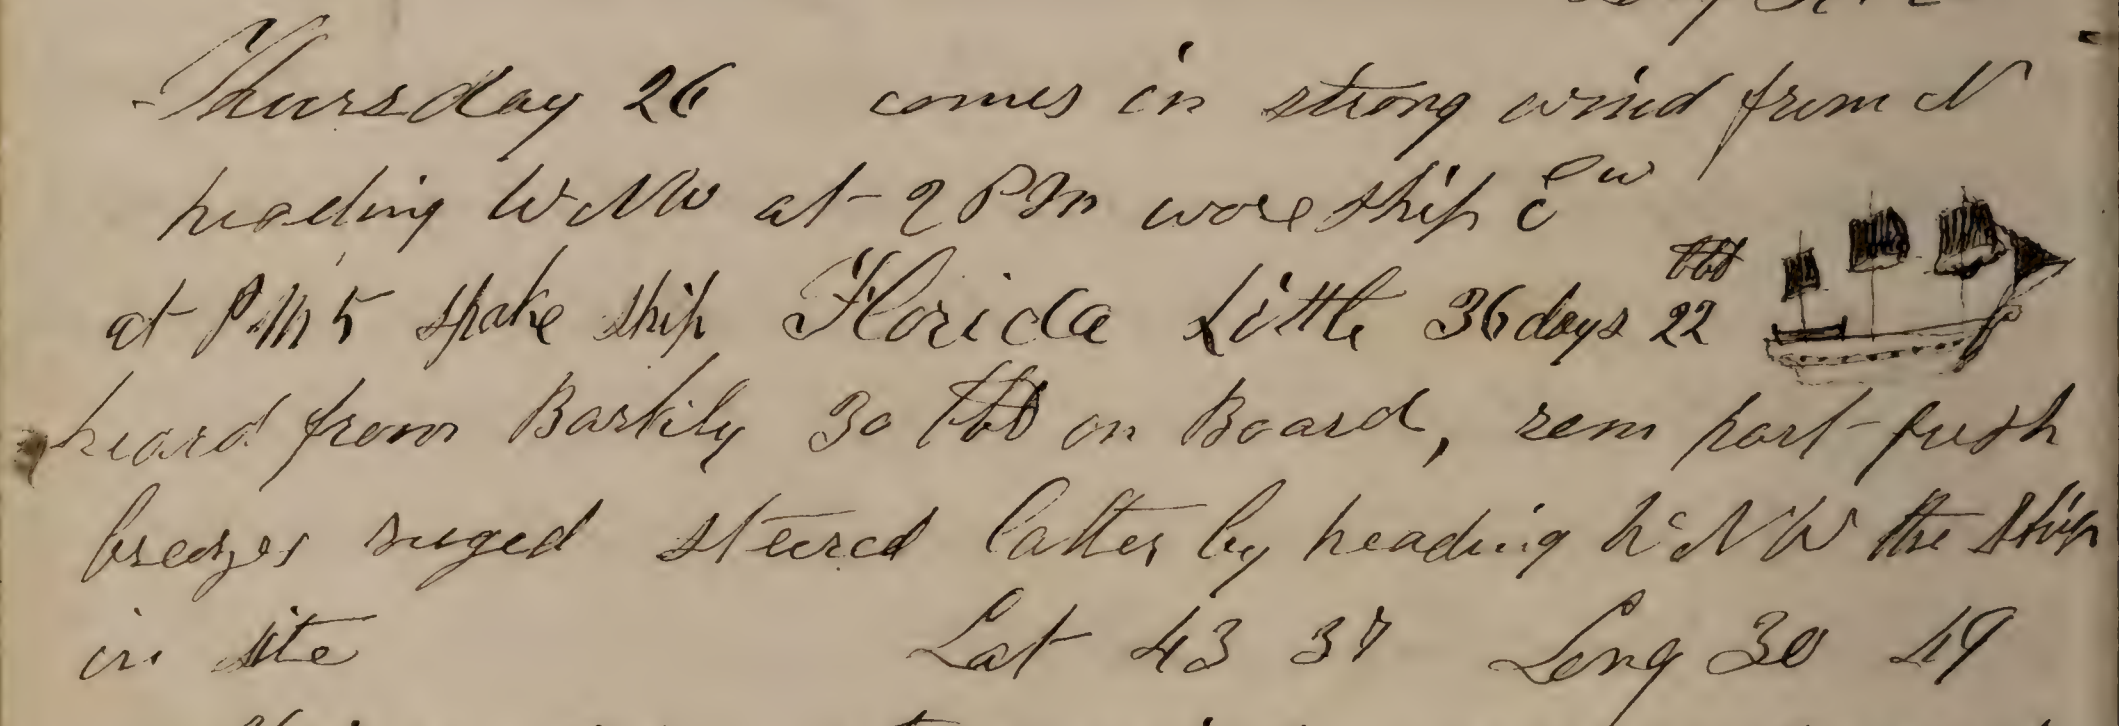 Thursday 26 comes in strong wind from N
heading W N W at 2 P M wore ship
at P M 5 spake ship Florida Little 36 days 22 bbl
heard from Barkily 30 bbl on Board, rem part fresh
breezes ruged steered latter by heading W N W the ship
in site Lat 43 37 Long 30 49